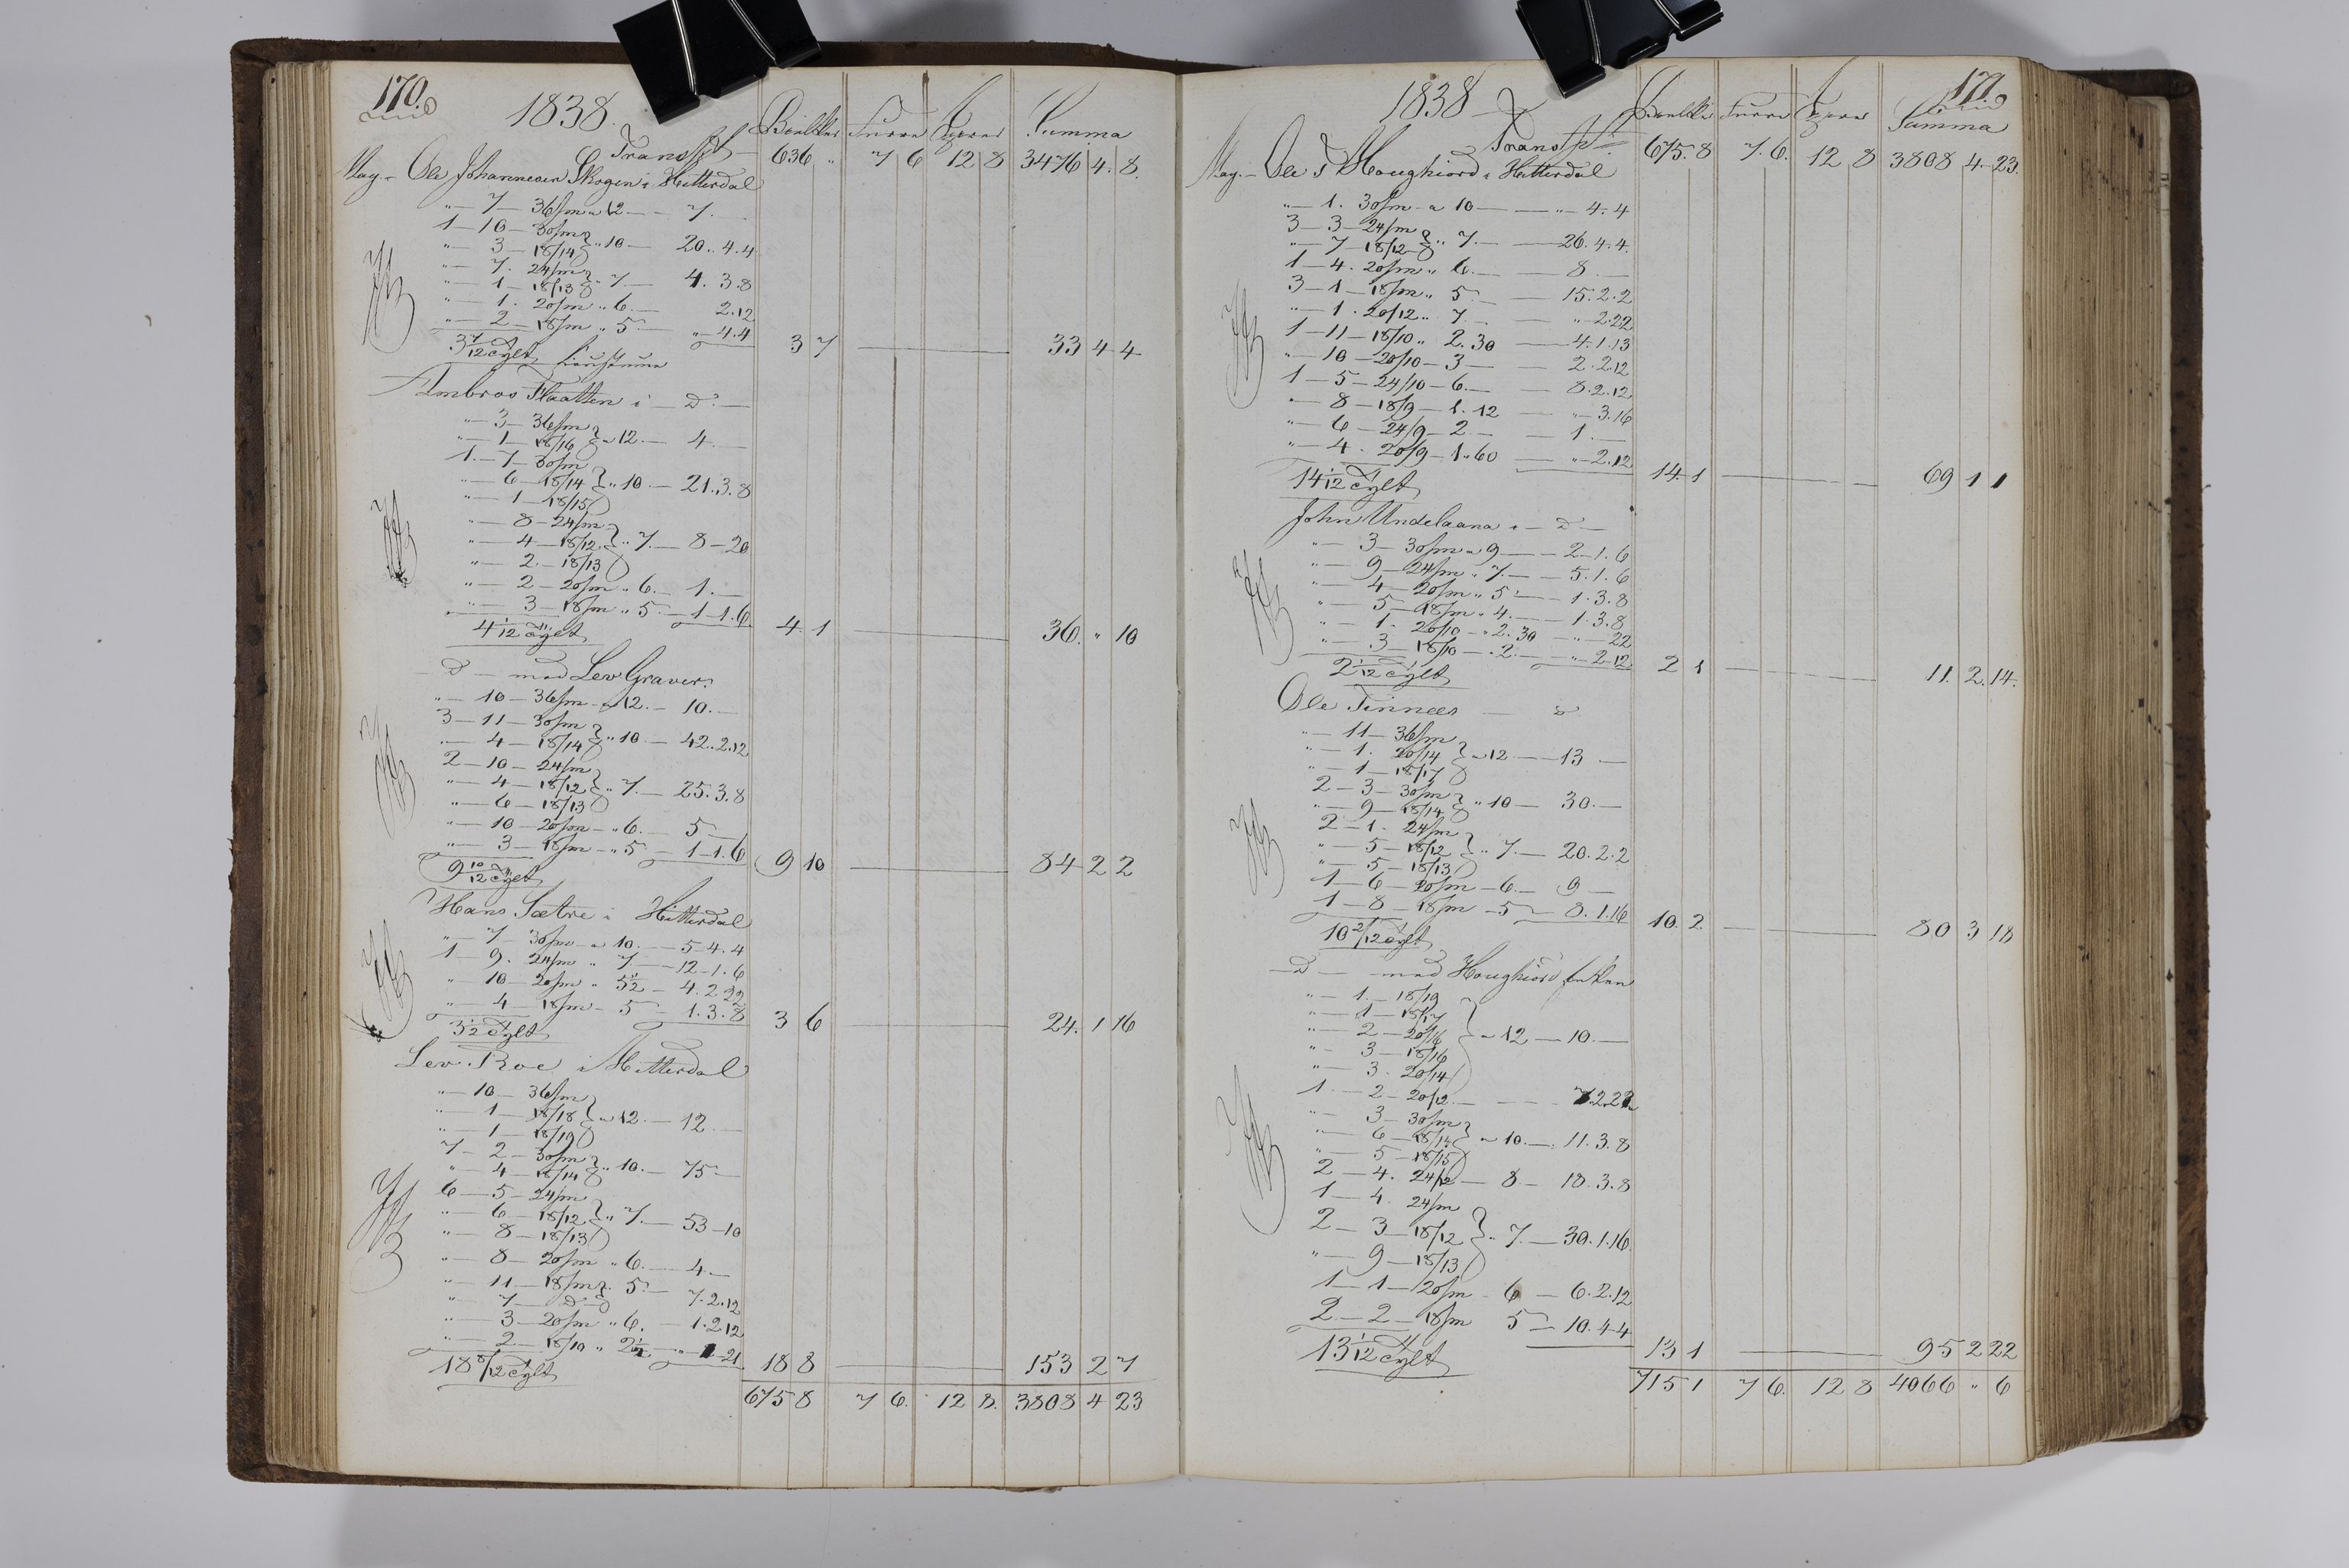 170.
1838.
Bielker Furre Summa
Transpt — 636 „ 7 6 12 8 3476 4. 8.
May.– Ole Johannesen Skogen i Hitterdal
„— 7 — 36/m a 12 — 7. —
1 – 10 – 30/m
„— 3 — 18/14 „ 10 — 20. 4. 4
„— 7. 24/m
„— 1 — 18/13 „ 7. — 4. 3. 8
„— 1. 20/m „ 6. — 2. 12
„— 2 — 18/m „ 5 — „ 4. 4
3 7/12 tylt 3 7 — 33 4 4
Ambros Flaatten i — D: —
„— 3 — 36/m
„— 1 — 18/16 a 12. — 4. —
1. — 7 — 30/m
„— 6 — 18/14 „ 10 — 21. 3. 8
„— 1 — 18/15
„— 8 — 24/m
„— 4 — 18/12 „ 7. — 8 — 20
„— 2. — 18/13
„— 2 — 20/m „ 6. — 1. —
„— 3 — 18/m „ 5 — 1 – 1. 6.
4 1/12 tylt 4. 1 — 36. „ 10
D — med Lev Graver.
„— 10 — 36/m — a 12. — 10. —
3 — 11 — 30/m
„— 4 — 18/14 „ 10 — 42. 2. 12
2 — 10 — 24/m
„— 4 — 18/12 „ 7. — 25. 3. 8
„— 6 — 18/13
„— 10 — 20/m — „ 6. — 5 —
„— 3 — 18/m — „ 5 — 1 – 1. 6
9 10/12 tylt 9 10 — 84 2 2
Hans Sætre i Hitterdal
„— 7 — 30/m — a 10. — 5. 4. 4
1 — 9. 24/m „ 7. — 12 – 1. 6
„ 10 — 20/m „ 5½ — 4. 2 22
„— 4 — 18/m — 5 — 1. 3. 8
3½ tylt 3 6 — 24. 1 16
Lev Roe i Hitterdal
„— 10 — 36/m
„— 1 — 18/18 a 12. — 12 —
„— 1 — 18/19
7 — 2 — 30/m
„— 4 — 18/14 „ 10. — 75 —
6 — 5 — 24/m
„— 6 — 18/12 „ 7. — 53 – 10
„— 8 — 18/13
„— 8 — 20/m „ 6. — 4. —
„— 11 — 18/m 5. —
„— 7 — D 7. 2. 12
„— 3 — 20/m „ 6. — 1. 2 12
„— 2 — 18/10 „ 2½ — 21
18 8/12 tylt 18 8 — 153 2 7
675 8 7 6. 12 8. 3808 4 23
171.
1838
Bielker Furre Summa
Transpt 675. 8 7. 6. 12 8 3808 4. 23.
May. — Ole Houghiord i Hitterdal
„— 1. 30/m a 10 — „ 4. 4
3 — 3 — 24/m
„— 7 — 18/12 „ 7. — 26. 4. 4.
1 — 4. 20/m „ 6. — 8. —
3 — 1 — 18/m „ 5 — 15. 2. 2
„— 1. 20/12 „ 7. — „ 2. 22
1 — 11 — 18/10 „ 2. 30 — 4. 1. 13
„— 10 — 20/10 — 3 — 2. 2. 12
1 — 5 — 24/10 — 6. — 8. 2. 12
„— 8 — 18/9 — 1. 12 — „ 3. 16
„— 6 — 24/9 — 2. — 1. —
„— 4. 20/9 — 1. 60 — „ 2. 12
14 1/12 tylt 14. 1 — 69 1 1
John Undelaana i — D —
„— 3 — 30/m a 9 — 2 – 1. 6
„— 9 — 24/m „ 7. — 5. 1. 6
„— 4 — 20/m „ 5 — 1. 3. 8
„— 5 — 18/m „ 4. — 1. 3. 8
„— 1. 20/10 — 2. 30 — „ 22
„— 3 — 18/10 — 2. — „ 2. 12
2 1/12 tylt 2 1 — 11. 2. 14.
Ole Tinnees — D
„— 11 — 36/m
„— 1. 20/14 a 12 — 13 —
„— 1 — 18/17
2 — 3 — 30/m
„— 9 — 18/14 „ 10 — 30. —
2 — 1. 24/m
„— 5 — 18/12 „ 7. — 20. 2. 2
„— 5 — 18/13
1 — 6 — 20/m — 6. — 9 —
1 — 8 — 18/m — 5 — 8. 1. 16
10 2/12 tylt 10. 2 — 80 3 18
D — med Houghiord
„— 1. — 18/19
„— 1 — 18/17
„— 2 — 20/16 a 12 — 10. —
„— 3 — 18/16
„— 3. 20/14
1. — 2 — 20/12 — 2. 22
„— 3 — 30/m
„— 6 — 18/14 a 10. — 11. 3. 8
„— 5 — 18/15
2 — 4. 24/12 — 8 — 18. 3. 8
1 — 4. 24/m
2 — 3 — 18/12 „ 7. — 30. 1. 16.
„— 9 — 18/13
1 — 1 — 20/m — 6 — 6. 2. 12
2 — 2 — 18/m 5 — 10. 4 4
13 1/12 tylt 13 1 — 95 2 22
715 1 7 6. 12 8 4066 „ 6